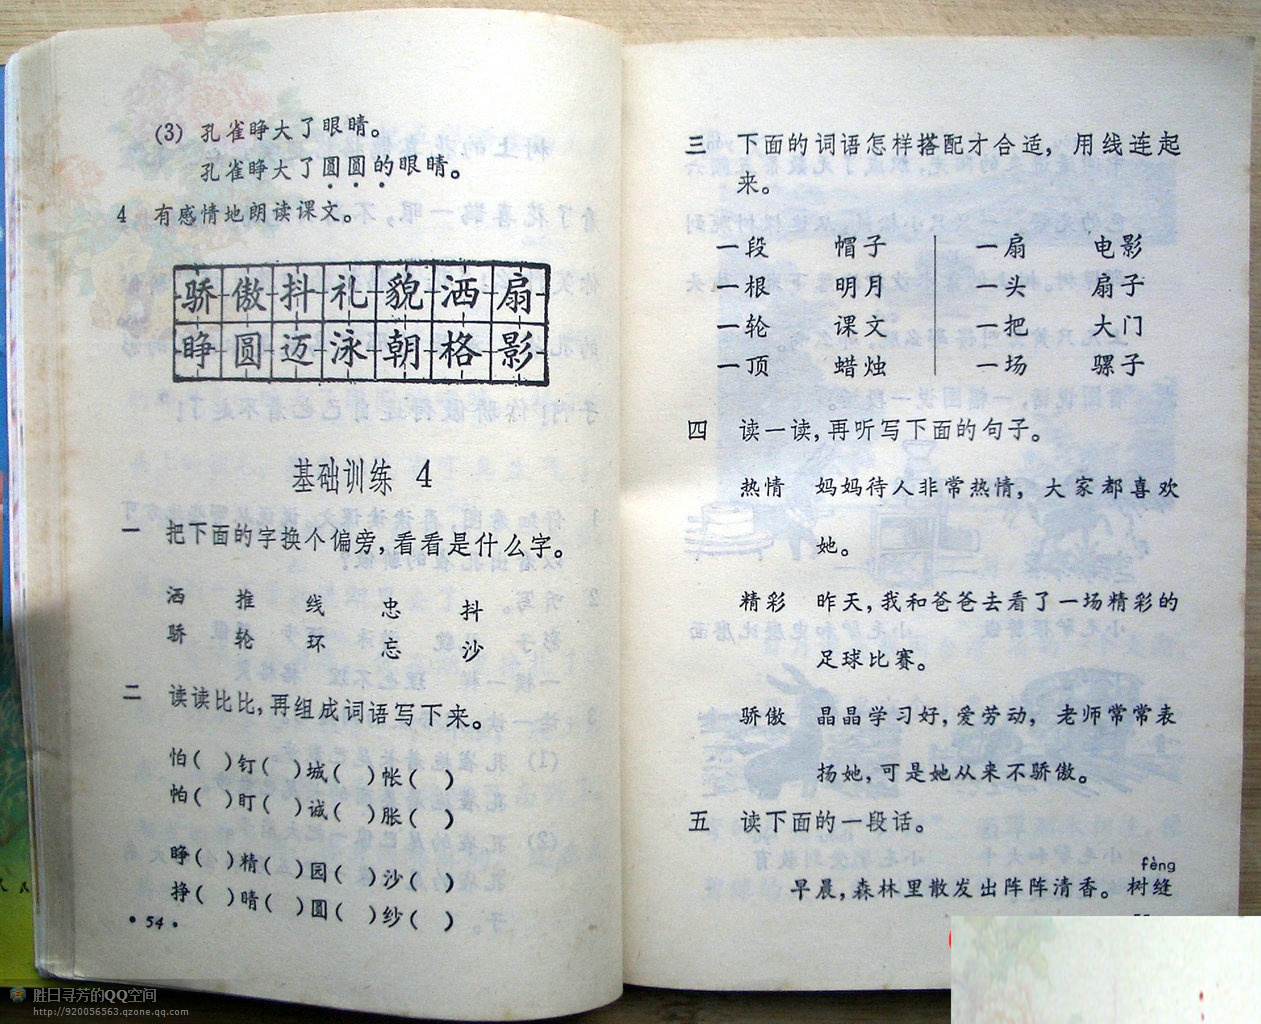 (3) 孔雀睁大了眼睛。
孔雀睁大了圆圆的眼睛。
4 有感情地朗读课文。
骄傲抖礼貌洒扇
睁圆迈泳朝格影
基础训练 4
一 把下面的字换个偏旁,看看是什么字。
洒 推 线 忠 抖
骄 轮 环 忘 沙
二 读读比比,再组成词语写下来。
怕( )钉( )城( )帐( )
帕( )盯( )诚( )胀( )
睁( )精( )园( )沙( )
挣( )晴( )圆( )纱( )
•54•
三 下面的词语怎样搭配才合适,用线连起
来。
一段 帽子 一扇 电影
一根 明月 一头 扇子
一轮 课文 一把 大门
一顶 蜡烛 一场 骡子
四 读一读,再听写下面的句子。
热情 妈妈待人非常热情,大家都喜欢
她。
精彩 昨天,我和爸爸去看了一场精彩的
足球比赛。
骄傲 晶晶学习好,爱劳动,老师常常表
扬她,可是她从来不骄傲。
五 读下面的一段话。
fèng
早晨,森林里散发出阵阵清香。树缝
胜日寻芳的QQ空间
http://920056563.qzone.qq.com